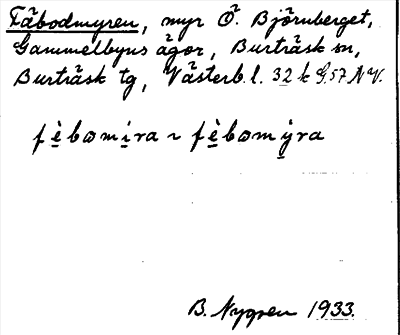 Fäbodmyren, myr Ö. Björnberget,
Gammelbyns ägor, Burträsk sn,
Burträsk tg, Västerb.l. 32 k G.57 N V.
fè̱bωmi̱ra ~ fè̱bωmy̱ra
B. Nygren 1933.